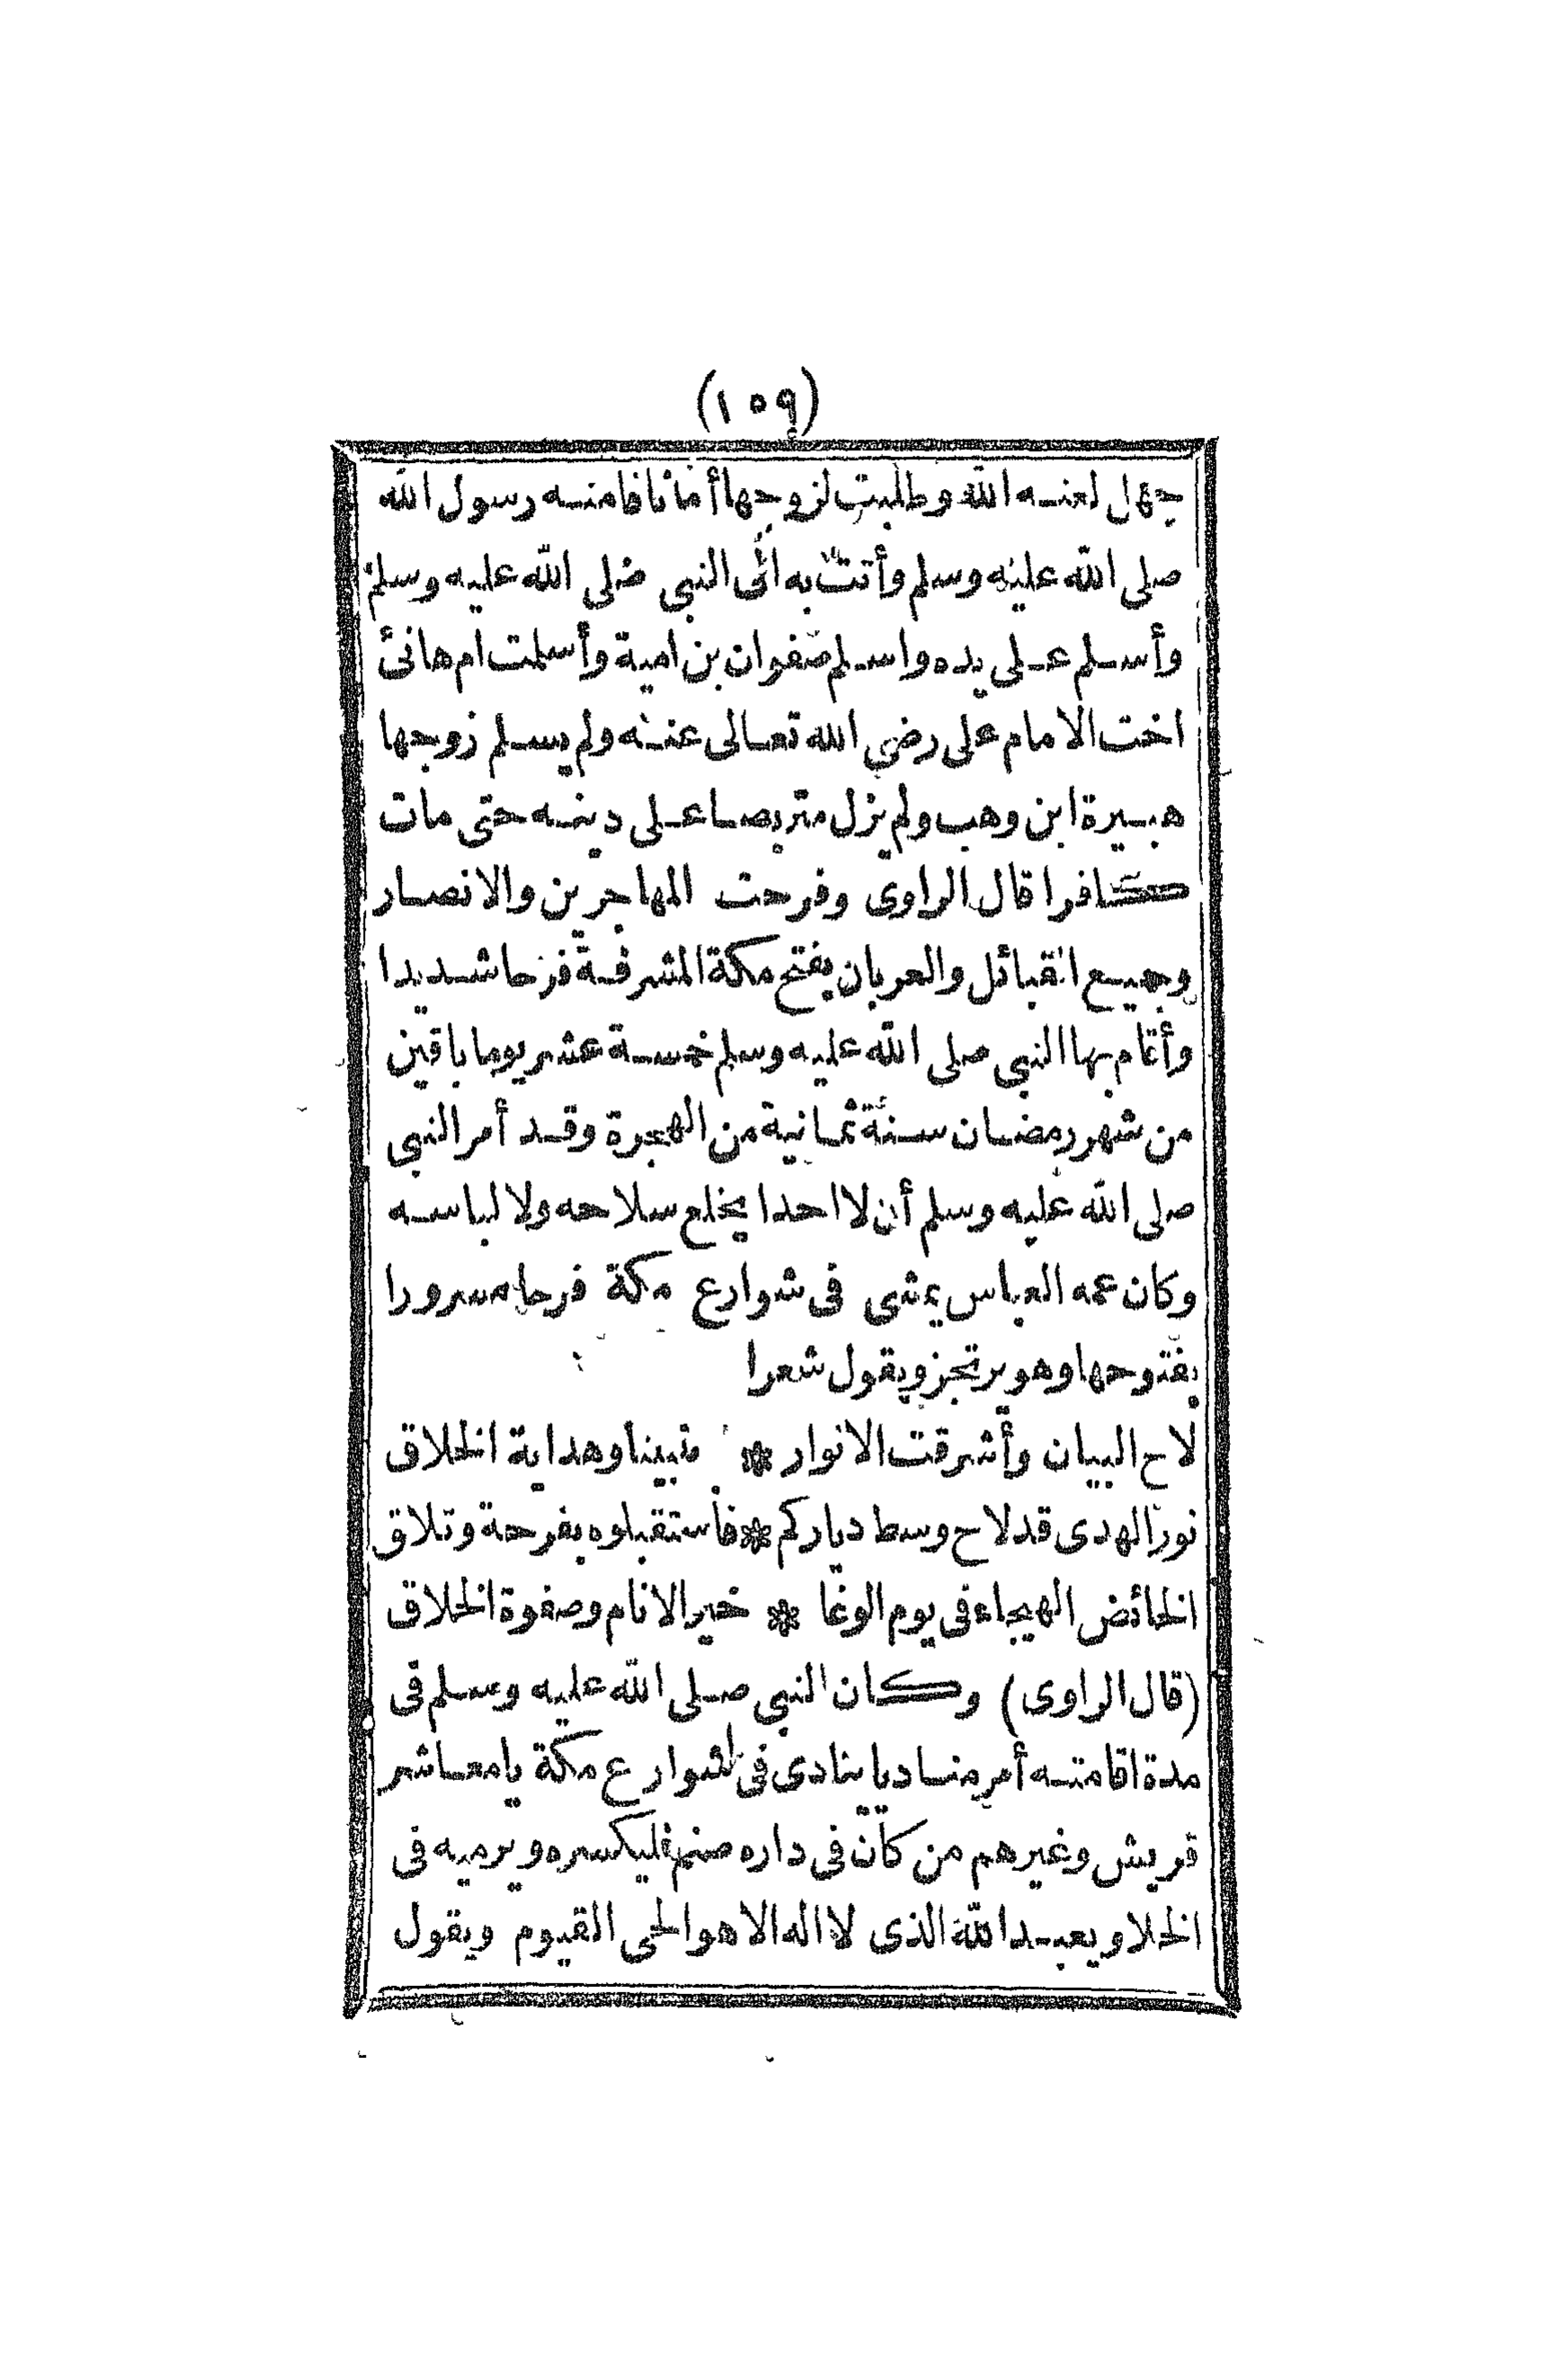 (١٥٩)
جهل لعنه الله وطلبت لزوجها أمانا فامنه رسول الله
صلى الله عليه وسلم وأتت به الى النبي صلى الله عليه وسلم
وأسلم على يده واسلم صفوان بن امية وأسلمت ام هانئ
اخت الامام على رضي الله تعالى عنه ولم يسلم زوجها
هبيرة ابن وهب ولم يزل متربصا على دينه حتى مات
كافرا قال الراوى وفرحت المهاجرين والانصار
وجميع القبائل والعربان بفتح مكة المشرفة فرحا شديدا
وأقام بها النبي صلى الله عليه وسلم خمسة عشر يوما باقين
من شهر رمضان سنة ثمانية من الهجرة وقد أمر النبي
صلى الله عليه وسلم أن لا احدا يخلع سلاحه ولا لباسه
وكان عمه العباس يمشى فى شوارع مكة فرحا مسرورا
بفتوحها وهو يرتجز ويقول شعرا
لاح البيان وأشرقت الانوار * نبينا وهداية الخلاق
نور الهدى قد لاح وسط دياركم * فاستقبلوه بفرحة وتلاق
الخائض الهيجاء فى يوم الوغا * خير الانام وصفوة الخلاق
(قال الراوى) وكان النبي صلى الله عليه وسلم فى
مدة اقامته أمر مناديا ينادى فى شوارع مكة يا معاشر
قريش وغيرهم من كان فى داره صنم فليكسره ويرميه فى
الخلا ويعبد الله الذى لا اله الا هو الحى القيوم ويقول